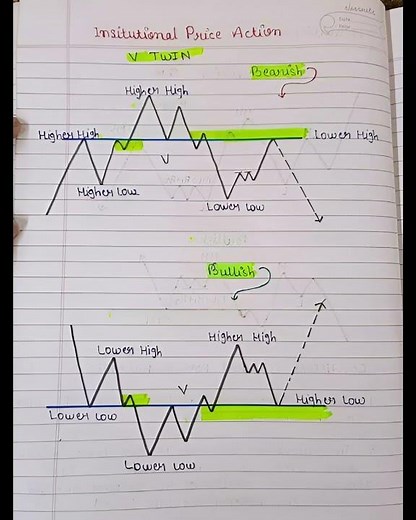 Classmate
Date
Page
Insitutional Price Action
V TWIN
Bearish
Higher High
Higher High
Lower High
V
Higher Low
Lower Low
Bullish
Lower High
Higher High
V
Higher Low
Lower Low
Lower Low